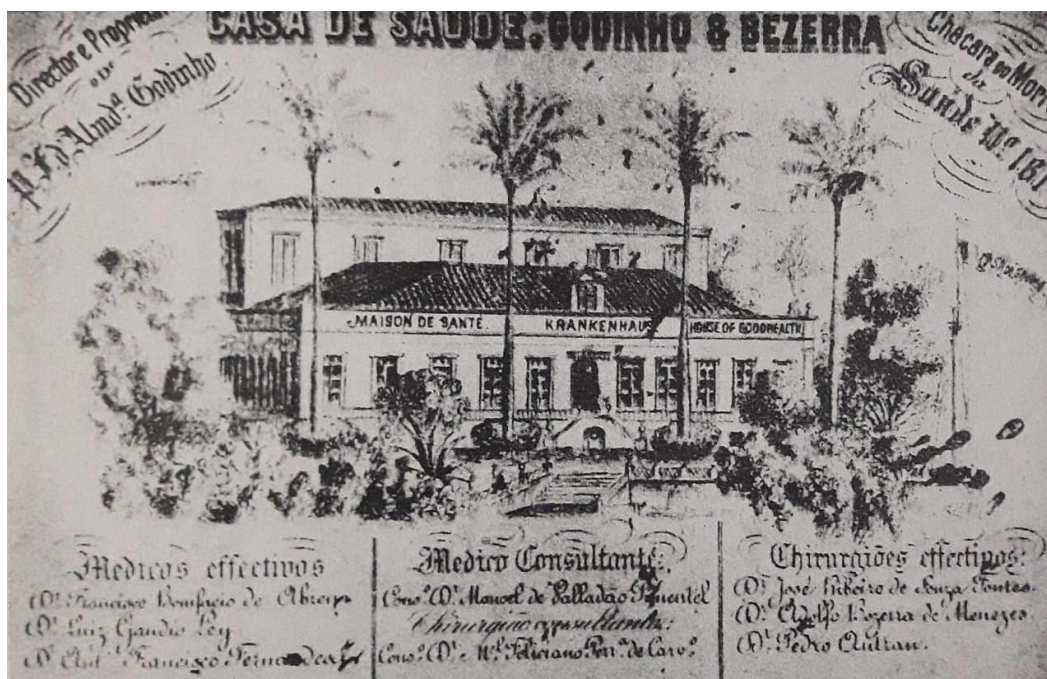 CASA DE SAUDE. GODINHO & BEZERRA
Director e Propriet
P. F. d'Almdª. Godinho
Chacara do Mor
da
Saude Nº 181
MAISON DE SANTÉ. KRANKENHAUS HOUSE OF GOODHEALTH
Medicos effectivos
Dr. Francisco Bomfacio de Abreu
Dr. Luiz Gaudio Ley
Dr. Ant. Francisco Fernandes
Medico Consultante:
Consº. Dr. Manoel de Valladão Pimentel
Chirurgião consultante:
Consº. Dr. Ml. Feliciano Perª. de Carvº.
Chirurgiões effectivos:
Dr. José Ribeiro de Souza Fontes.
Dr. Adolfo Bezerra de Menezes.
Dr. Pedro Autran.